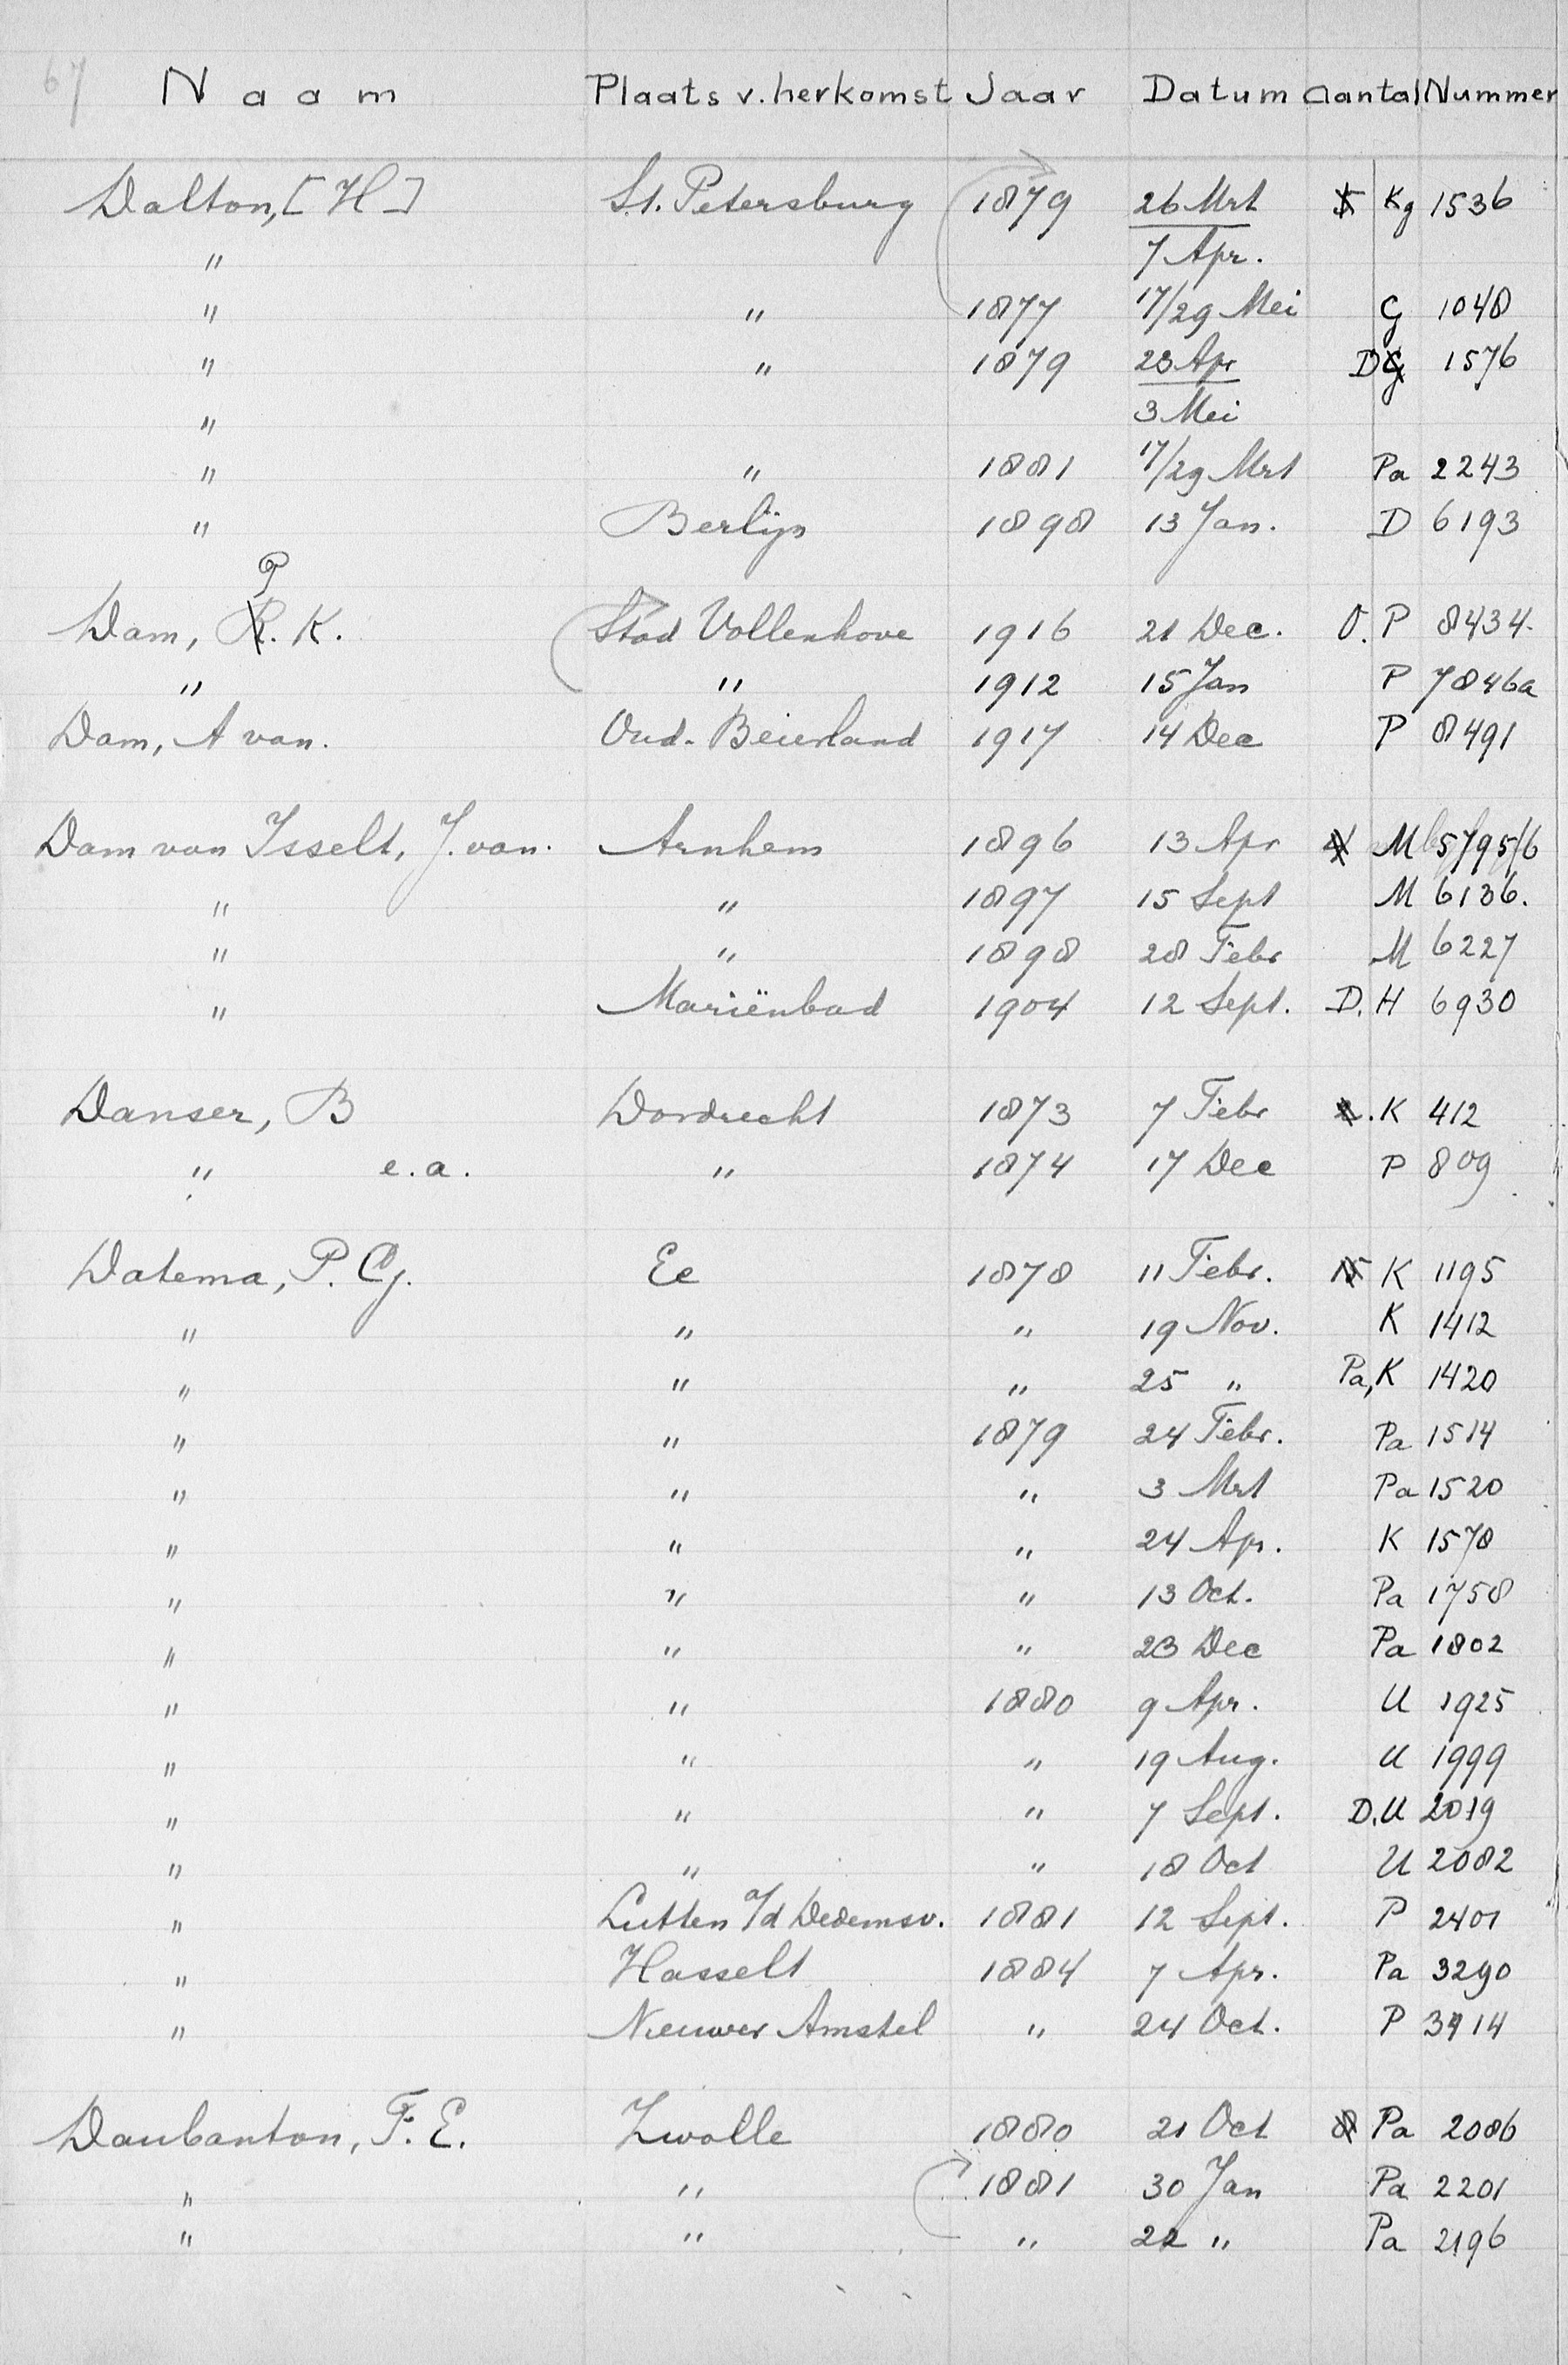 67 Naam Plaats v. herkomst Jaar Datum Aantal Nummer
Dalton, [H] St. Petersburg 1879 26 Mrt Kg 1536
" 7 Apr.
" " 1877 17/29 Mei G 1048
" " 1879 23 Apr D 1576
" 3 Mei
" " 1881 17/29 Mrt Pa 2243
" Berlijn 1898 13 Jan. D 6193
P
Dam, R. K. Stad Vollenhove 1916 21 Dec. O. P 8434.
" " 1912 15 Jan P 7846a
Dam, A van. Oud-Beierland 1917 14 Dec P 8491
Dam van Isselt, J. van. Arnhem 1896 13 Apr 4 M 5795/6
" " 1897 15 Sept M 6136.
" " 1898 28 Febr M 6227
" Mariënbad 1904 12 Sept. D. H 6930
Danser, B Dordrecht 1873 7 Febr 2. K 412
" e.a. " 1874 17 Dec P 809
Datema, P. Cj. Ee 1878 11 Febr. 15 K 1195
" " " 19 Nov. K 1412
" " " 25 " Pa, K 1420
" " 1879 24 Febr. Pa 1514
" " " 3 Mrt Pa 1520
" " " 24 Apr. K 1578
" " " 13 Oct. Pa 1758
" " " 23 Dec Pa 1802
" " 1880 9 Apr. U 1925
" " " 19 Aug. U 1999
" " " 7 Sept. D. U 2019
" " " 18 Oct U 2082
" Lutten a/d Dedemsv. 1881 12 Sept. P 2401
" Hasselt 1884 7 Apr. Pa 3290
" Nieuwer Amstel " 24 Oct. P 3414
Daubanton, F. E. Zwolle 1880 21 Oct 8 Pa 2086
" " 1881 30 Jan Pa 2201
" " " 22 " Pa 2196